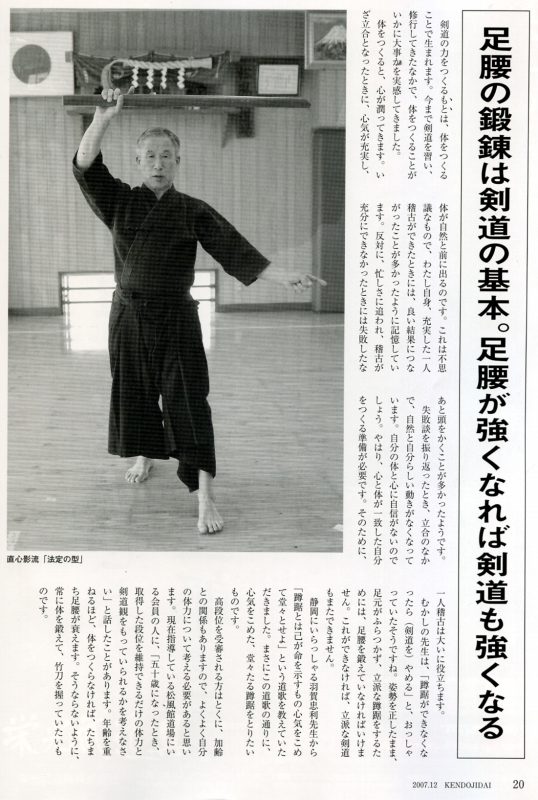 足腰の鍛錬は剣道の基本。足腰が強くなれば剣道も強くなる
剣道の力をつくるもとは、体をつくる
ことで生まれます。今まで剣道を習い、
修行してきたなかで、体をつくることが
いかに大事かを実感してきました。
体をつくると、心が潤ってきます。い
ざ立合となったときに、心気が充実し、
体が自然と前に出るのです。これは不思
議なもので、わたし自身、充実した一人
稽古ができたときには、良い結果につな
がったことが多かったように記憶してい
ます。反対に、忙しさに追われ、稽古が
充分にできなかったときには失敗したな
あと頭をかくことが多かったようです。
失敗談を振り返ったとき、立合のなか
で、自然と自分らしい動きがなくなって
います。自分の体と心に自信がないので
しょう。やはり、心と体が一致した自分
をつくる準備が必要です。そのために、
一人稽古は大いに役立ちます。
むかしの先生は、「蹲踞ができなくな
ったら（剣道を）やめる」と、おっしゃ
っていたそうですね。姿勢を正したまま、
足元がふらつかず、立派な蹲踞をするた
めには、足腰を鍛えていなければいけま
せん。これができなければ、立派な剣道
もまたできません。
静岡にいらっしゃる羽賀忠利先生から
「蹲踞とは己が命を示すもの心気をこめ
て堂々とせよ」という道歌を教えていた
だきました。まさにこの道歌の通りに、
心気をこめた、堂々たる蹲踞をとりたい
ものです。
高段位を受審される方はとくに、加齢
との関係もありますので、よくよく自分
の体力について考える必要があると思い
ます。現在指導している松風館道場にい
る会員の人に、「五十歳になったとき、
取得した段位を維持できるだけの体力と
剣道観をもっていられるかを考えなさ
い」と話したことがあります。年齢を重
ねるほど、体をつくらなければ、たちま
ち足腰が衰えます。そうならないように、
常に体を鍛えて、竹刀を握っていたいも
のです。
直心影流「法定の型」
2007.12 KENDOJIDAI 20